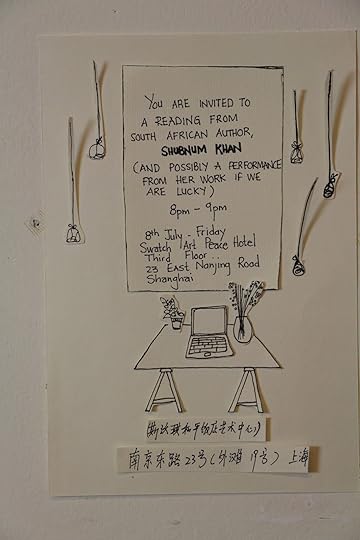 YOU ARE INVITED TO
A READING FROM
SOUTH AFRICAN AUTHOR,
SHUBNUM KHAN
(AND POSSIBLY A PERFORMANCE
FROM HER WORK IF WE
ARE LUCKY)
8pm – 9pm
8th July - Friday
Swatch Art Peace Hotel
Third Floor..
23 East Nanjing Road
Shanghai
(斯沃琪和平饭店艺术中心)
南京东路23号(外滩19号) 上海